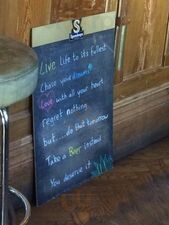 Live life to its fullest
Chase your dreams
Love with all your heart
regret nothing
but... do that tomorrow
Take a Beer instead
You deserve it